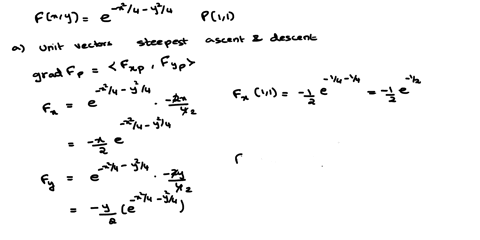 F(x,y) = e^{-x²/4 - y²/4}   P(1,1)
a) Unit vectors steepest ascent & descent
grad F_p = < F_{xp} , F_{yp} >
F_x = e^{-x²/4 - y²/4} · -2x/4 2   F_x (1,1) = -1/2 e^{-1/4 - 1/4} = -1/2 e^{-1/2}
= -x/2 e^{-x²/4 - y²/4}
F_y = e^{-x²/4 - y²/4} · -2y/4 2
= -y/2 (e^{-x²/4 - y²/4})